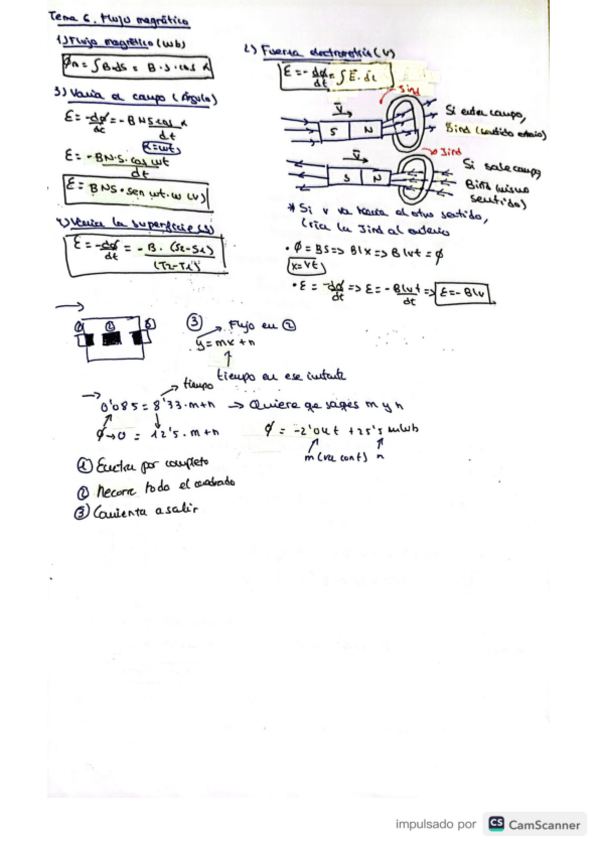 Tema 6. Flujo magnético
1) Flujo magnético (Wb)
Φm = ∫B·ds = B·S·cos α
2) Fuerza electromotriz (V)
ε = -dφ/dt = ∫E·dl
3) Varia el campo (Ángulo)
ε = -dφ/dt = -BNS cos α
α = ωt
ε = -BN·S·cos ωt/dt
ε = BNS·sen ωt·ω (V)
4) Varia la superficie (S)
ε = -dφ/dt = -B·(S2-S1)/(T2-T1)
Iind
v
S N
Si entra campo,
Bind (sentido
Iind
v
S N
Si sale campo,
Bind (mismo
sentido)
* Si v va hacia el otro sentido,
cría la Iind al
• φ = BS => Blx => Blvt = φ
x = vt
• ε = -dφ/dt => ε = -Blvt/dt => ε = -Blv
① ② ③
③ Flujo en ②
y = mx + n
tiempo en ese instante
tiempo
0'085 = 8'33·m+n → Quiere que saques m y n
φ→0 = 12'5·m+n
φ = -2'04t + 25'5 mWb
m (va con t) n
① Entra por completo
② Recorre todo el cuadrado
③ Comienza a salir
impulsado por CS CamScanner